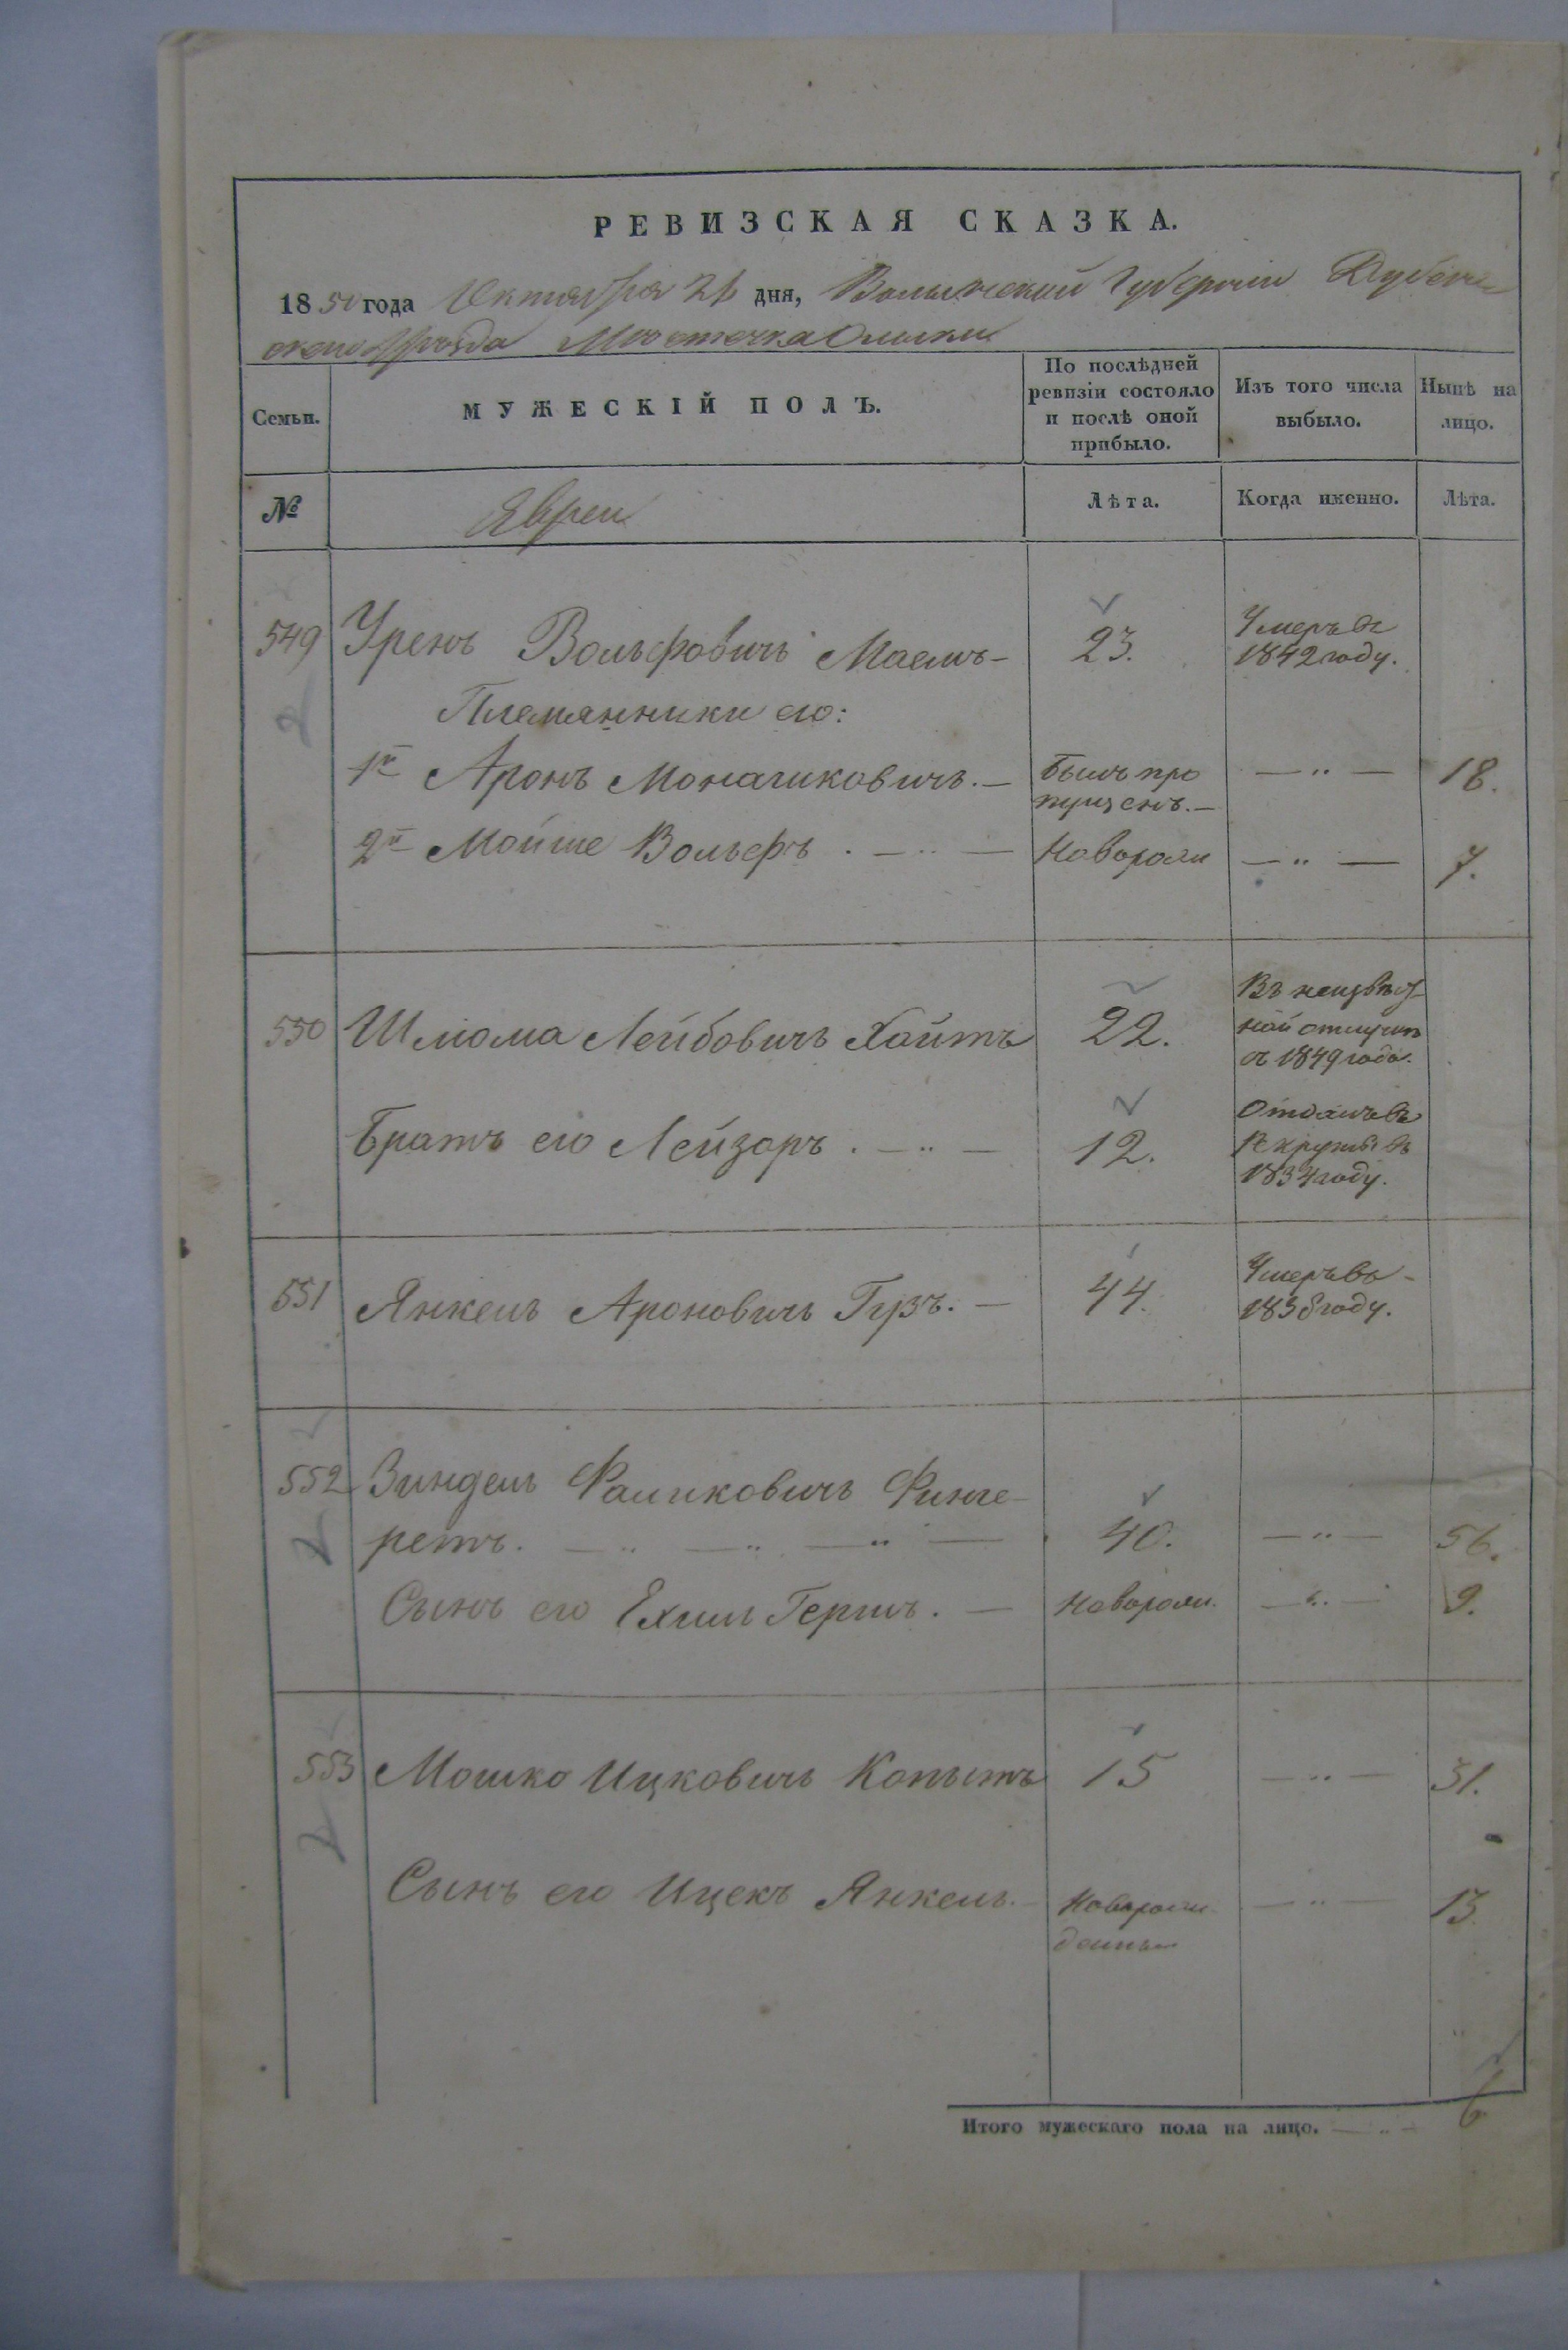 РЕВИЗСКАЯ СКАЗКА.
1850 года Октября 26 дня, Волынской Губерніи Дубен-
скаго Уѣзда Мѣстечка Олыки
Семьи. МУЖЕСКІЙ ПОЛЪ. По послѣдней ревизіи состояло и послѣ оной прибыло. Изъ того числа выбыло. Нынѣ на лицо.
№ Евреи Лѣта. Когда именно. Лѣта.
549 Уренъ Вольфовичъ Маемъ- 23. Умеръ въ 1842 году.
Племянники его:
1й Аронъ Моналиковичъ.- Былъ пропущенъ.- —"— 18.
2й Мойше Вольфъ. —"— Новорож —"— 7.
550 Шліома Лейбовичъ Хаитъ 22. Въ неизвѣстной отлучкѣ съ 1849 года.
Братъ его Лейзоръ. —"— 12. Отданъ въ Рекруты въ 1834 году.
551 Янкель Ароновичъ Гузъ. — 44. Умеръ въ 1838 году.
552 Зиндель Фаликовичъ Финге-
ретъ. —"—"—"— 40. —"— 56.
Сынъ его Ехил Гершъ. — Новорож. —"— 9.
553 Мошко Ицковичъ Копытъ 15 —"— 31.
Сынъ его Ицекъ Янкель.- Новорожденный —"— 13.
Итого мужескаго пола на лицо. —"— 6